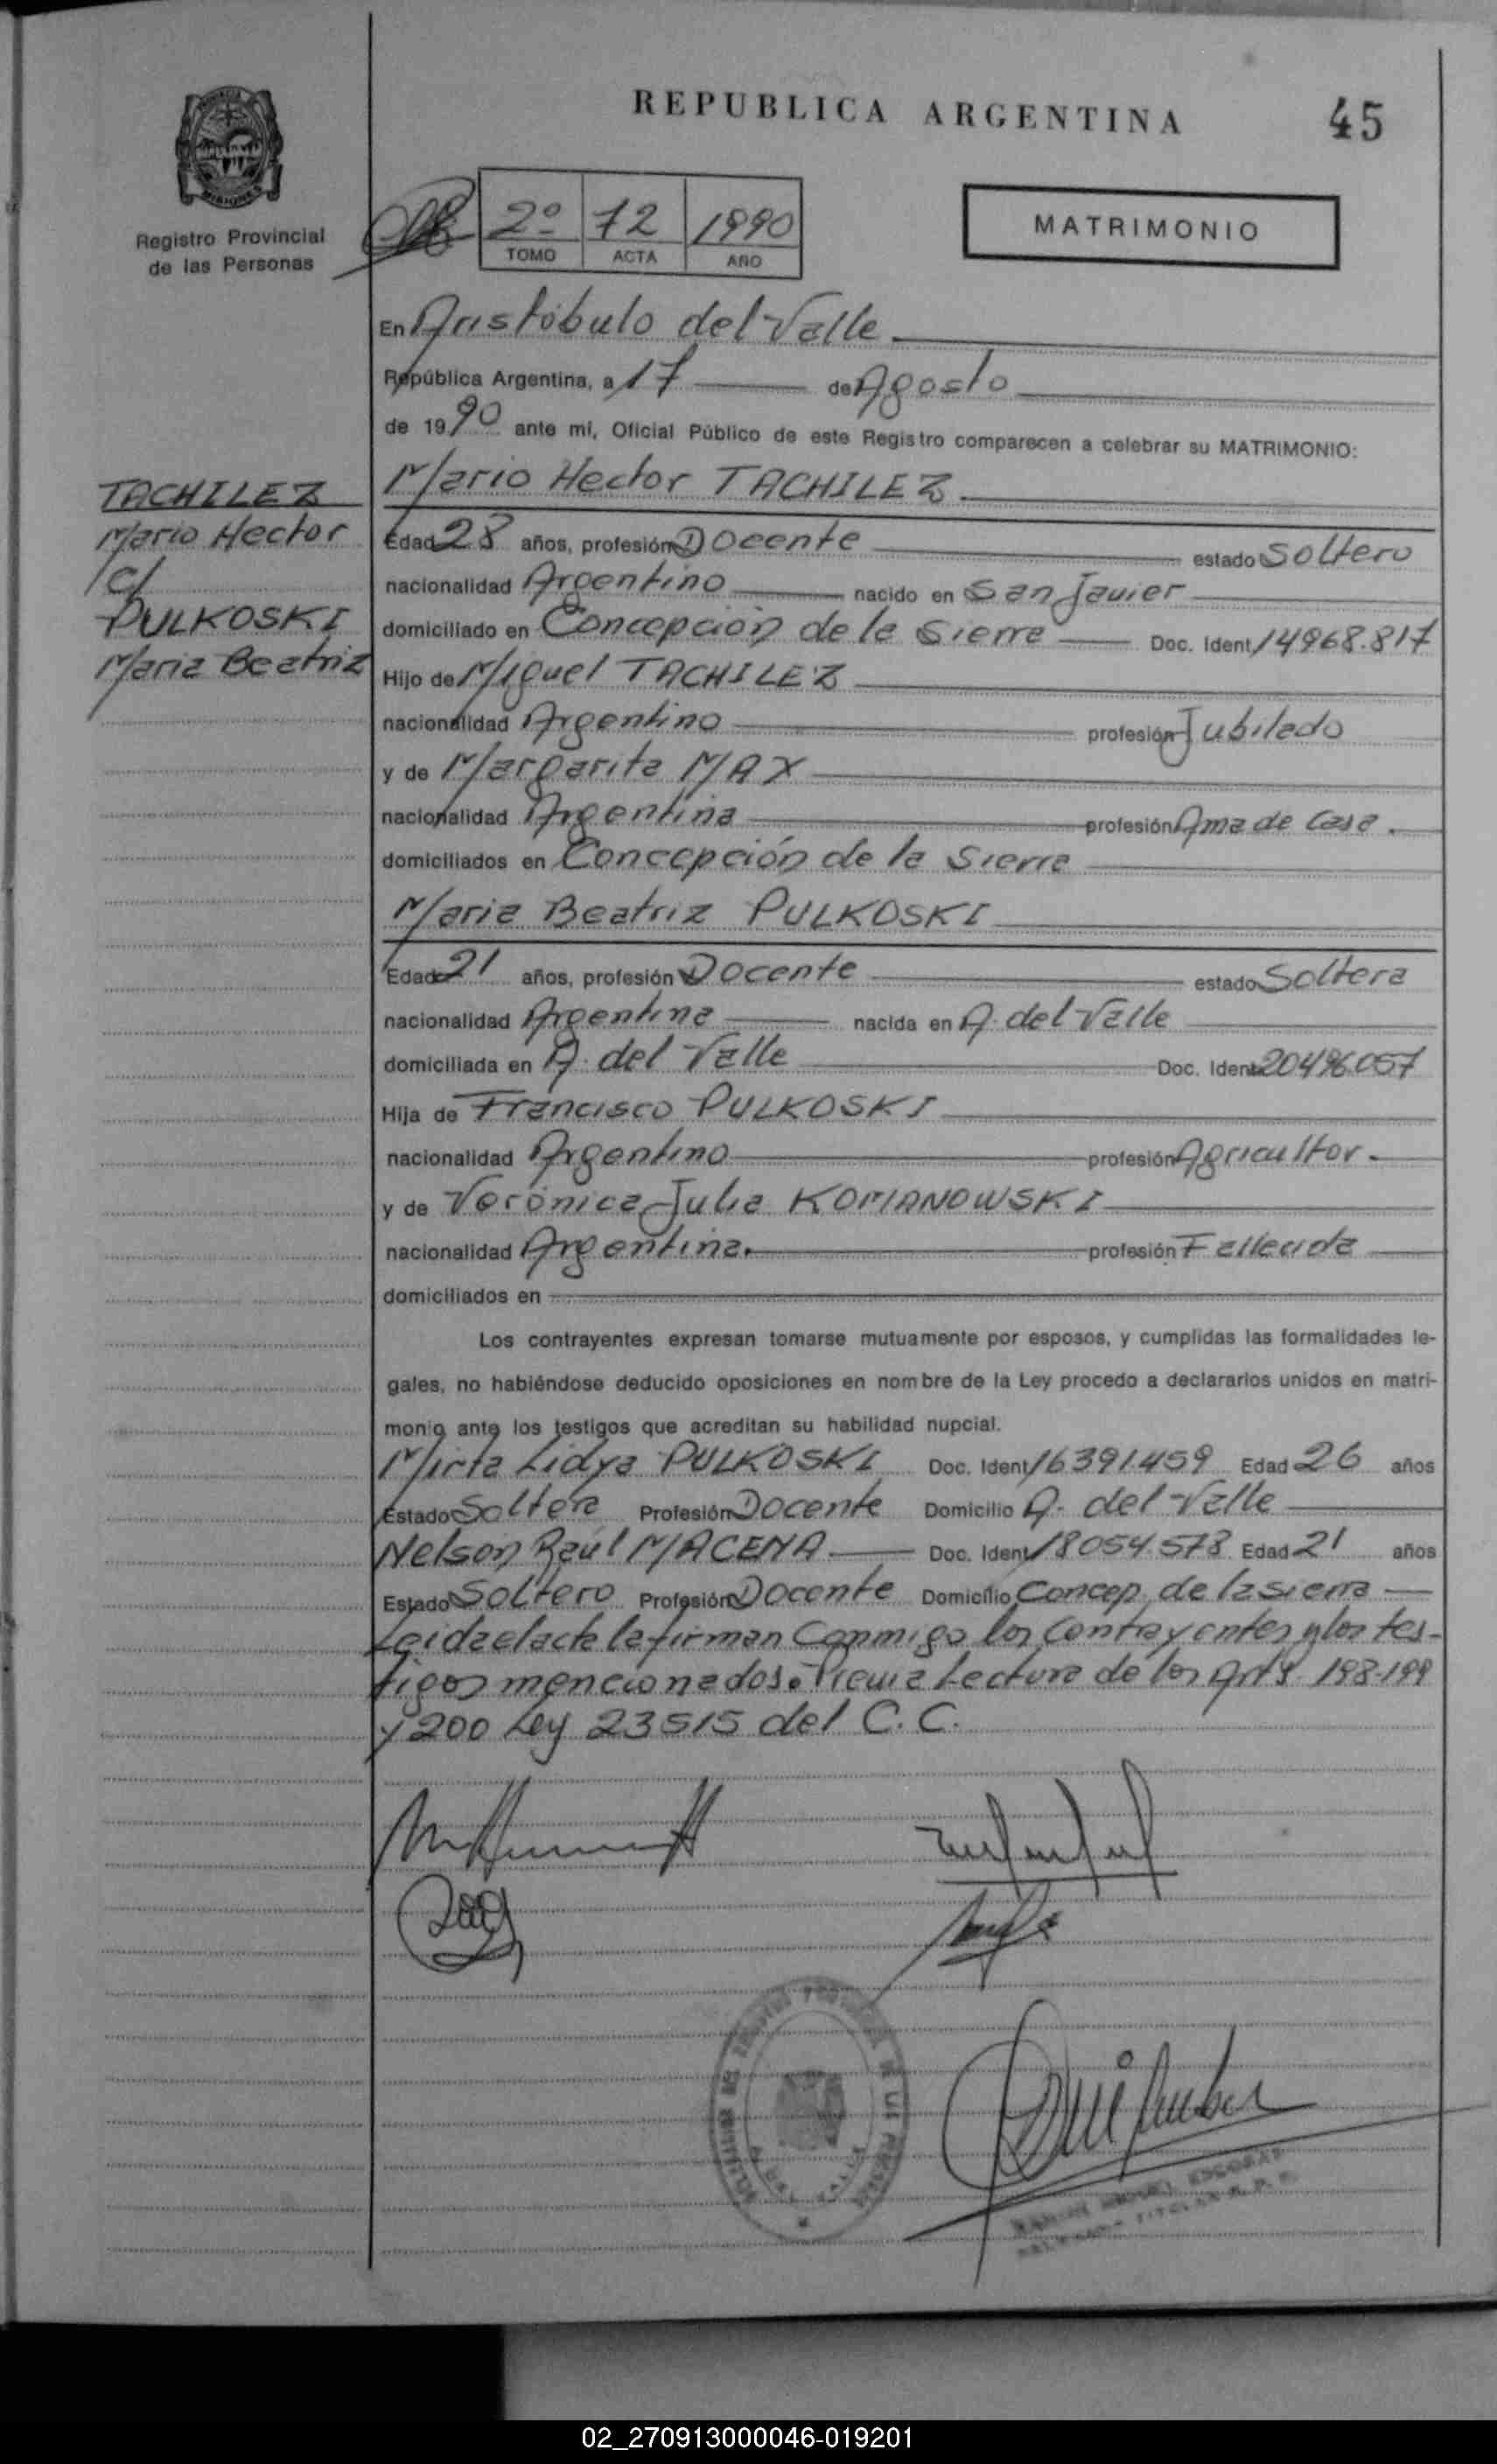 REPUBLICA ARGENTINA
45
MISIONES
Registro Provincial
de las Personas
2º 72 1990
TOMO ACTA AÑO
MATRIMONIO
En Aristóbulo del Valle
República Argentina, a 17 de Agosto
de 1990 ante mí, Oficial Público de este Registro comparecen a celebrar su MATRIMONIO:
TACHILEZ
Mario Hector
c/
PULKOSKI
Maria Beatriz
Mario Hector TACHILEZ
Edad 28 años, profesión Docente estado Soltero
nacionalidad Argentino nacido en San Javier
domiciliado en Concepción de la Sierra Doc. Ident 14968.817
Hijo de Miguel TACHILEZ
nacionalidad Argentino profesión Jubilado
y de Margarita MAX
nacionalidad Argentina profesión Ama de Casa.
domiciliados en Concepción de la Sierra
Maria Beatriz PULKOSKI
Edad 21 años, profesión Docente estado Soltera
nacionalidad Argentina nacida en A. del Valle
domiciliada en A. del Valle Doc. Ident 20496.057
Hija de Francisco PULKOSKI
nacionalidad Argentino profesión Agricultor.
y de Verónica Julia KOMANOWSKI
nacionalidad Argentina. profesión Fallecida
domiciliados en
Los contrayentes expresan tomarse mutuamente por esposos, y cumplidas las formalidades le-
gales, no habiéndose deducido oposiciones en nombre de la Ley procedo a declararlos unidos en matri-
monio ante los testigos que acreditan su habilidad nupcial.
Mirta Lidya PULKOSKI Doc. Ident 16391.459 Edad 26 años
Estado Soltera Profesión Docente Domicilio A. del Valle
Nelson Raúl MACENA Doc. Ident 18054.578 Edad 21 años
Estado Soltero Profesión Docente Domicilio Concep. de la Sierra
Leida el acta la firman Conmigo los Contrayentes y los tes-
tigos mencionados. Previa Lectura de los Arts. 198-199
y 200 Ley 23515 del C.C.
ESCOBAR
TITULAR R. P. P.
02_270913000046-019201